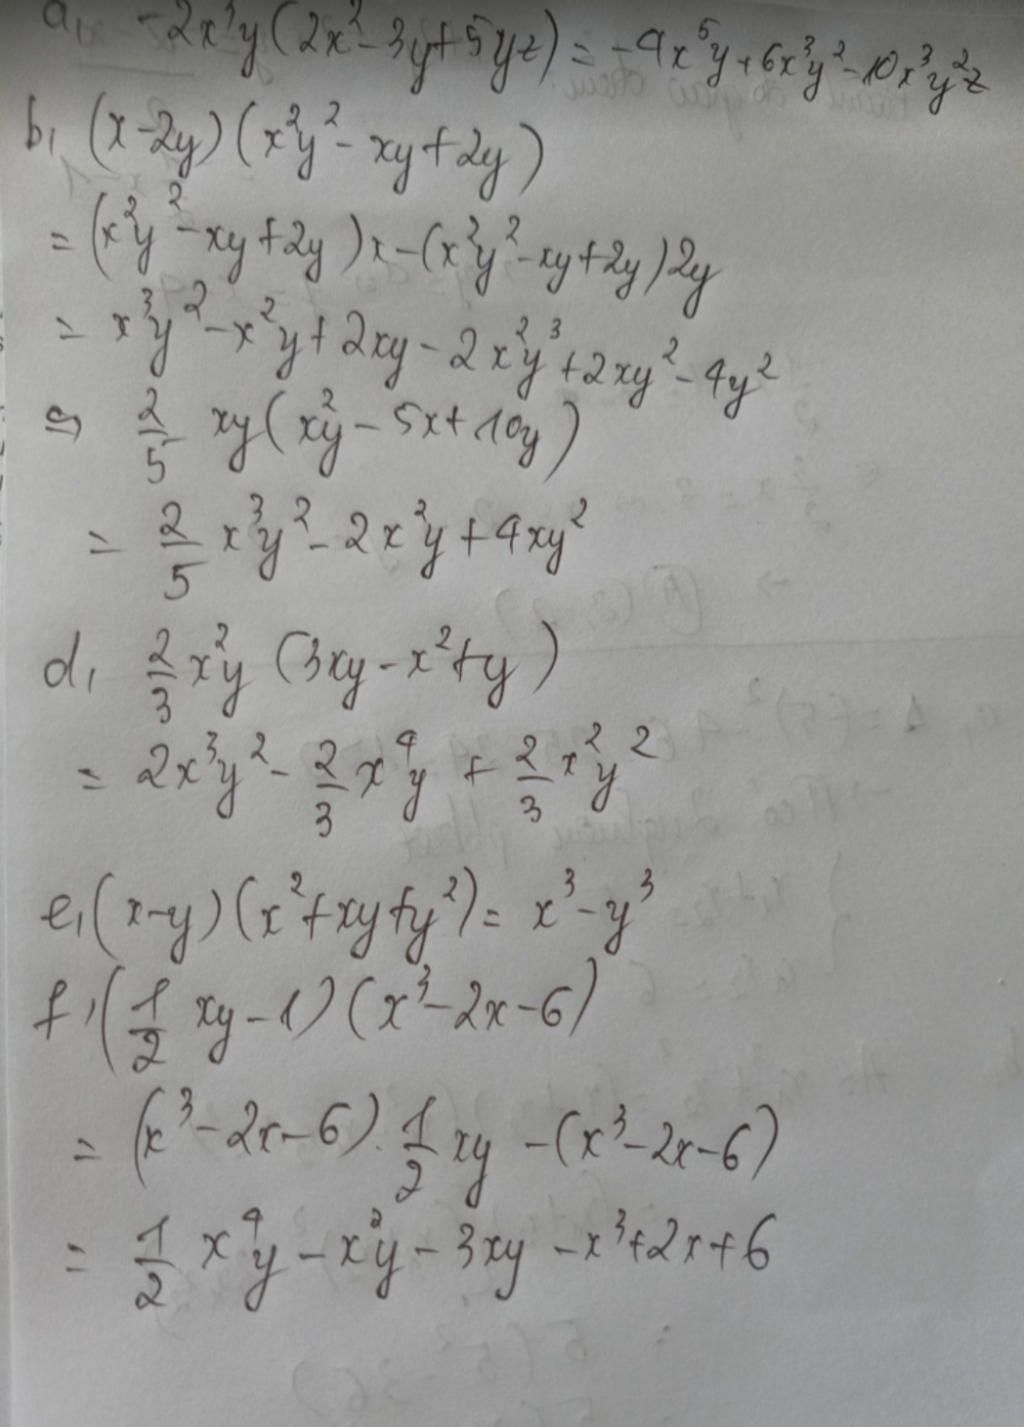 a, -2x³y(2x²-3y+5yz)=-4x⁵y+6x³y²-10x³y²z
b, (x-2y)(x²y²-xy+2y)
=(x²y²-xy+2y)x-(x²y²-xy+2y)2y
= x³y²-x²y+2xy-2x²y³+2xy²-4y²
c, 2/5 xy(x²y-5x+10y)
= 2/5 x³y²-2x²y+4xy²
d, 2/3 x²y (3xy-x²+y)
= 2x³y²- 2/3 x⁴y + 2/3 x²y²
e,(x-y)(x²+xy+y²)= x³-y³
f,(1/2 xy-1)(x³-2x-6)
= (x³-2x-6). 1/2 xy -(x³-2x-6)
= 1/2 x⁴y -x²y-3xy -x³+2x+6